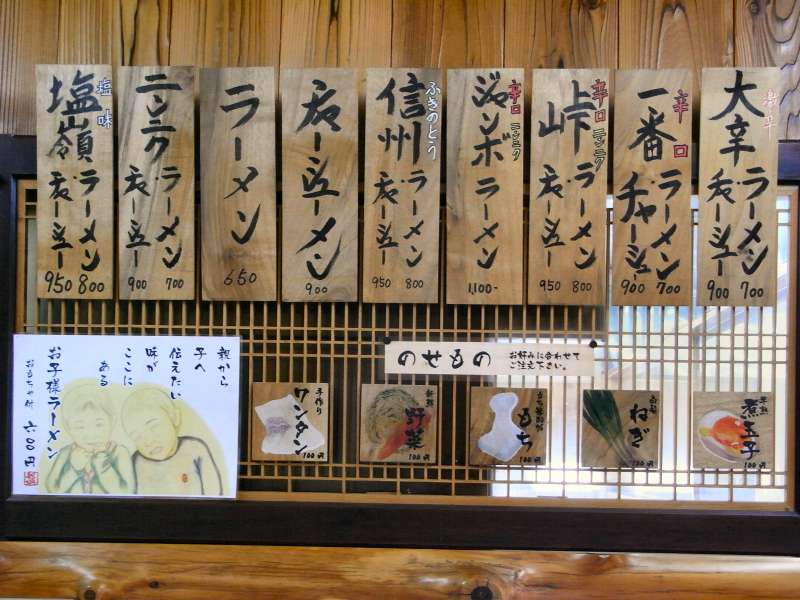 大辛
ラーメン 700
チャーシュー 900
辛口
一番
ラーメン 700
チャーシュー 900
辛口 ニンニク
峠
ラーメン 800
チャーシュー 950
辛口 ニンニク
ジャンボ
ラーメン
1,100-
ふきのとう
信州
ラーメン 800
チャーシュー 950
チャーシューメン
900
ラーメン
650
ニンニク
ラーメン 700
チャーシュー 900
塩味
塩嶺
ラーメン 800
チャーシュー 950
のせもの
お好みに合わせて
ご注文下さい。
半熟
煮玉子
100円
白髪
ねぎ
100円
もち
100円
新鮮
野菜
100円
手作り
ワンタン
100円
親から
子へ
伝えたい
味が
ここに
ある
お子様ラーメン
おもちゃ付 六〇〇円